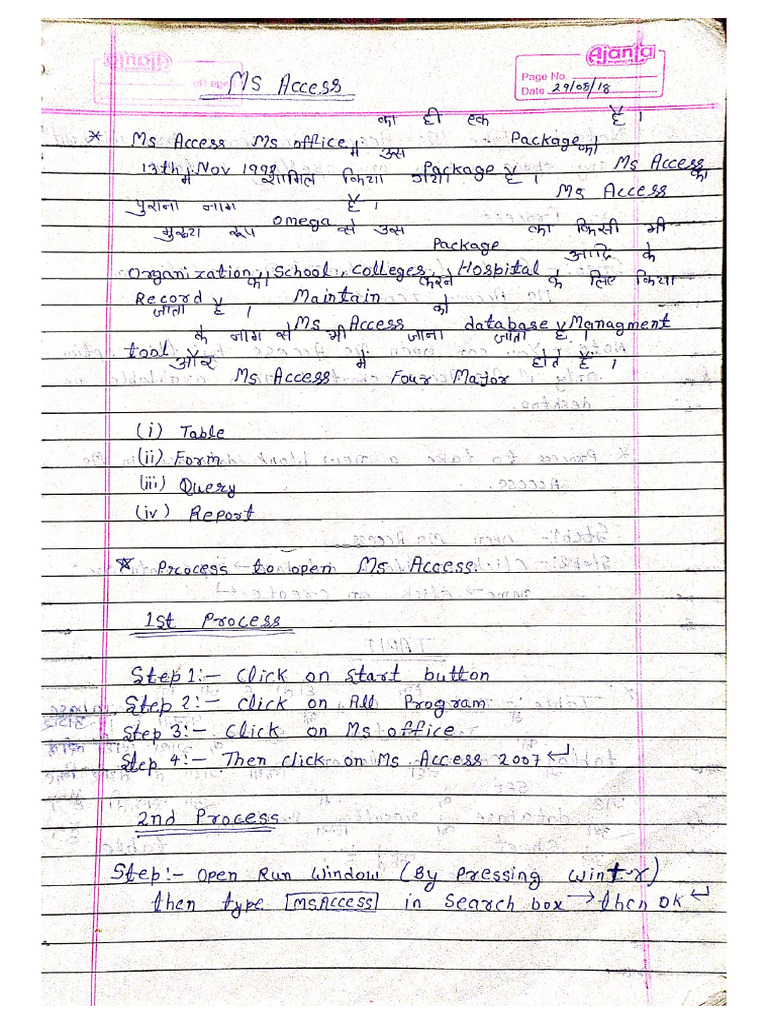 Ajanta
Page No.
Date 29/08/18
Ms Access
का ही एक है।
* Ms Access Ms office में उस Package को
13th Nov 1992 में शामिल किया गया Package है। Ms Access का
पुराना नाम है। Ms Access
मुख्य रूप omega से उस Package का किसी भी
Organization को School, Colleges, Hospital आदि के
Record जाता है। Maintain करने को के लिए किया
के नाम से Ms Access भी जाना database जाता है। Managment
tool और Ms Access में Four Major होते हैं।
(i) Table
(ii) Form
(iii) Query
(iv) Report
* Process to open Ms Access.
1st Process
Step 1:- Click on start button
Step 2:- Click on All Program
Step 3:- Click on Ms office
Step 4:- Then click on Ms Access 2007 ↵
2nd Process
Step:- Open Run Window (By Pressing win+r)
then type [msAccess] in Search box → then OK ↵